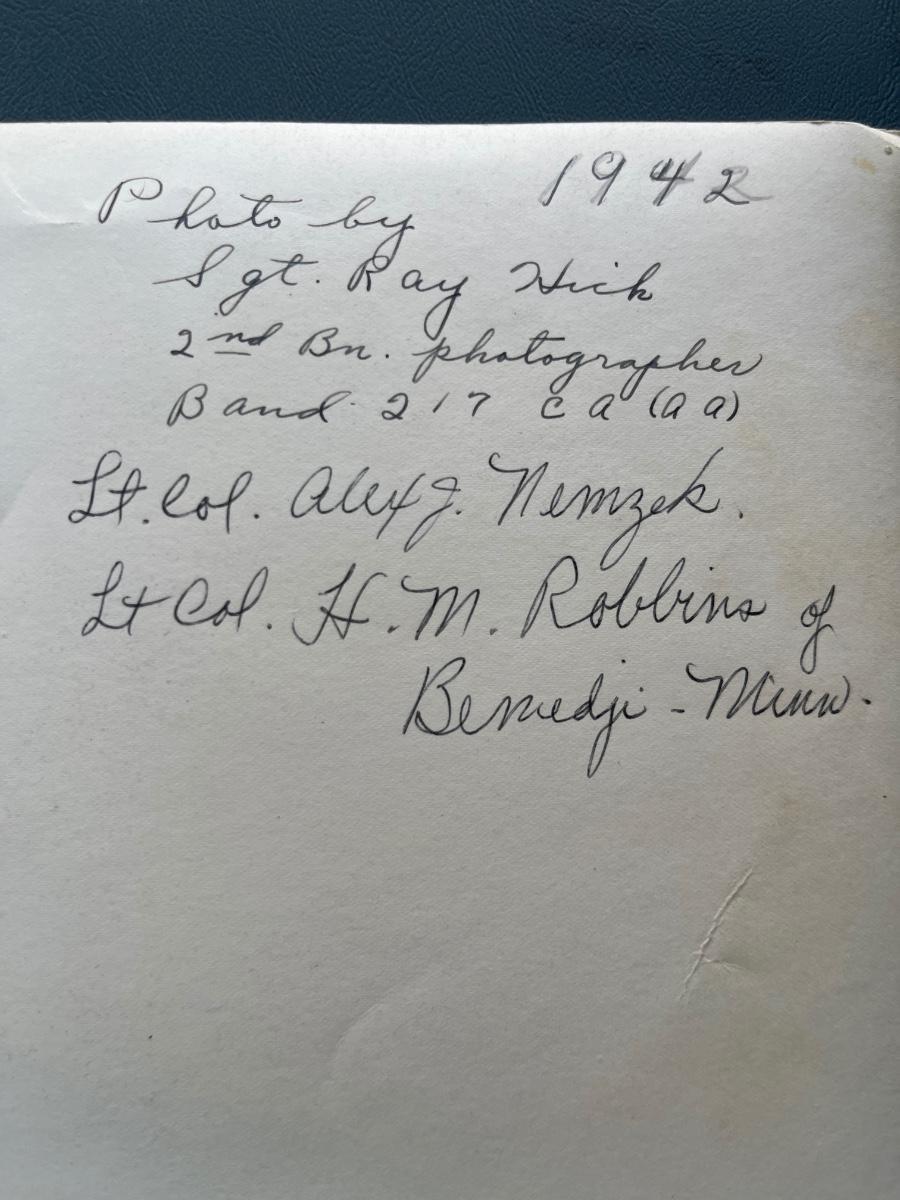 1942
Photo by
Sgt. Ray Hick
2nd Bn. photographer
Band 217 CA (AA)
Lt. Col. Alex J. Nemzek.
Lt Col. H. M. Robbins of
Bemedji - Minn.